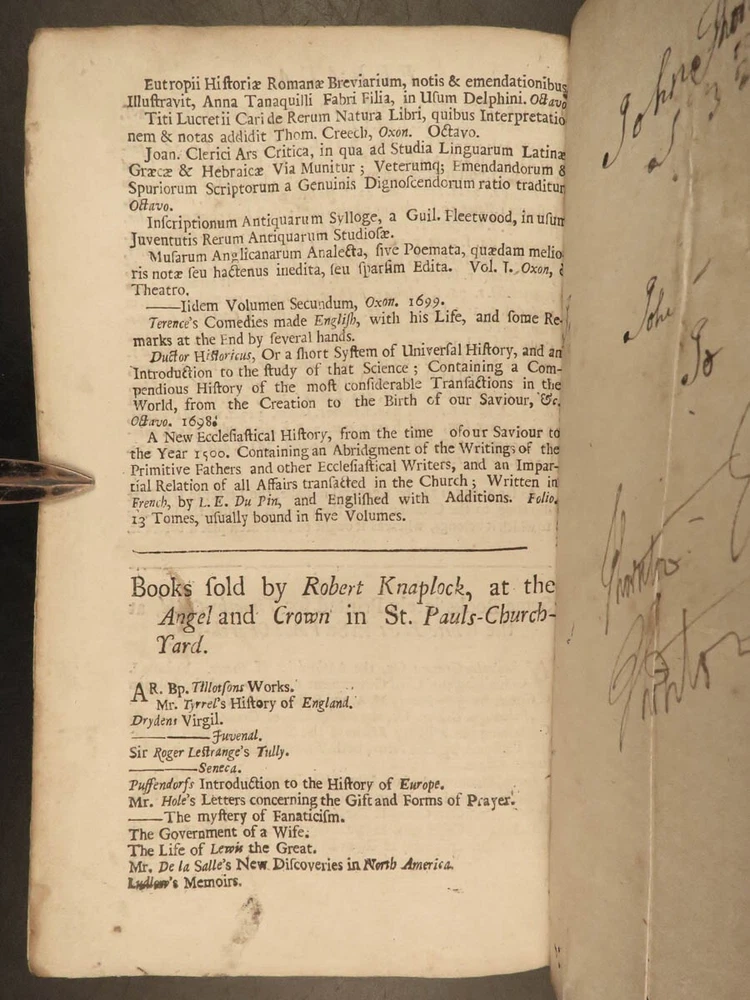 Eutropii Hiſtoriæ Romanæ Breviarium, notis & emendationibus
Illuſtravit, Anna Tanaquilli Fabri Filia, in Uſum Delphini. Octavo
Titi Lucretii Cari de Rerum Natura Libri, quibus Interpretatio
nem & notas addidit Thom. Creech, Oxon. Octavo.
Joan. Clerici Ars Critica, in qua ad Studia Linguarum Latinæ
Græcæ & Hebraicæ Via Munitur; Veterumq; Emendandorum &
Spuriorum Scriptorum a Genuinis Dignoſcendorum ratio traditur
Octavo.
Inſcriptionum Antiquarum Sylloge, a Guil. Fleetwood, in uſum
Juventutis Rerum Antiquarum Studioſæ.
Muſarum Anglicanarum Analecta, ſive Poemata, quædam melio
ris notæ ſeu hactenus inedita, ſeu ſparſim Edita. Vol. I. Oxon, è
Theatro.
——Iidem Volumen Secundum, Oxon. 1699.
Terence's Comedies made Engliſh, with his Life, and ſome Re-
marks at the End by ſeveral hands.
Ductor Hiſtoricus, Or a ſhort Syſtem of Univerſal Hiſtory, and an
Introduction to the ſtudy of that Science; Containing a Com-
pendious Hiſtory of the moſt conſiderable Tranſactions in the
World, from the Creation to the Birth of our Saviour, &c.
Octavo. 1698.
A New Eccleſiaſtical Hiſtory, from the time ofour Saviour to
the Year 1500. Containing an Abridgment of the Writings of the
Primitive Fathers and other Eccleſiaſtical Writers, and an Impar-
tial Relation of all Affairs tranſacted in the Church; Written in
French, by L. E. Du Pin, and Engliſhed with Additions. Folio.
13 Tomes, uſually bound in five Volumes.
Books ſold by Robert Knaplock, at the
Angel and Crown in St. Pauls-Church-
Yard.
AR. Bp. Tillotſons Works.
Mr. Tyrrel's Hiſtory of England.
Drydens Virgil.
——Juvenal.
Sir Roger Leſtrange's Tully.
——Seneca.
Puffendorfs Introduction to the Hiſtory of Europe.
Mr. Hole's Letters concerning the Gift and Forms of Prayer.
——The myſtery of Fanaticiſm.
The Government of a Wife.
The Life of Lewis the Great.
Mr. De la Salle's New Diſcoveries in North America.
Ludlow's Memoirs.
John
Jo